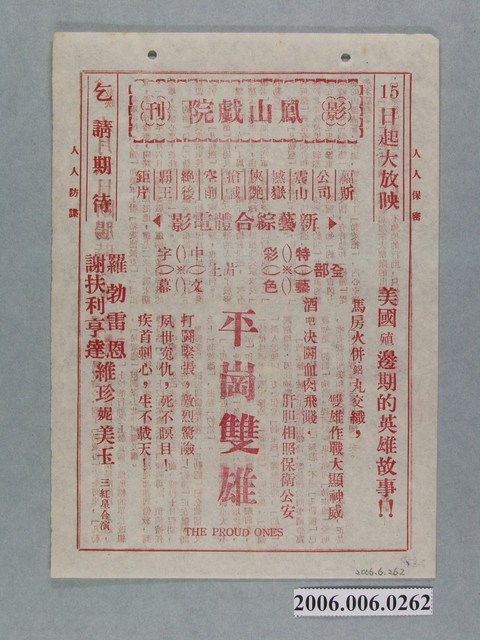 影 鳳山戲院 刊
15日起大放映
人人保密
美國殖邊期的英雄故事!!
福斯
公司
震山
撼嶽
俠艷
槍戰
空前
絕後
霸王
鉅片
新藝綜合體電影
全部
特藝
彩色
片上
中文
字幕
馬房火併鉛丸交織,
雙雄作戰大顯神威
酒吧決鬪血肉飛賤,
肝胆相照保衛公安
平崗雙雄
THE PROUD ONES
打鬪緊張,激烈驚險!
夙世寃仇,死不瞑目!
疾首刺心,生不載天!
乞請期待
人人防諜
羅勃雷恩
維珍妮美玉
謝扶利亨達
三紅星合演,
2006.6.262
2006.006.0262